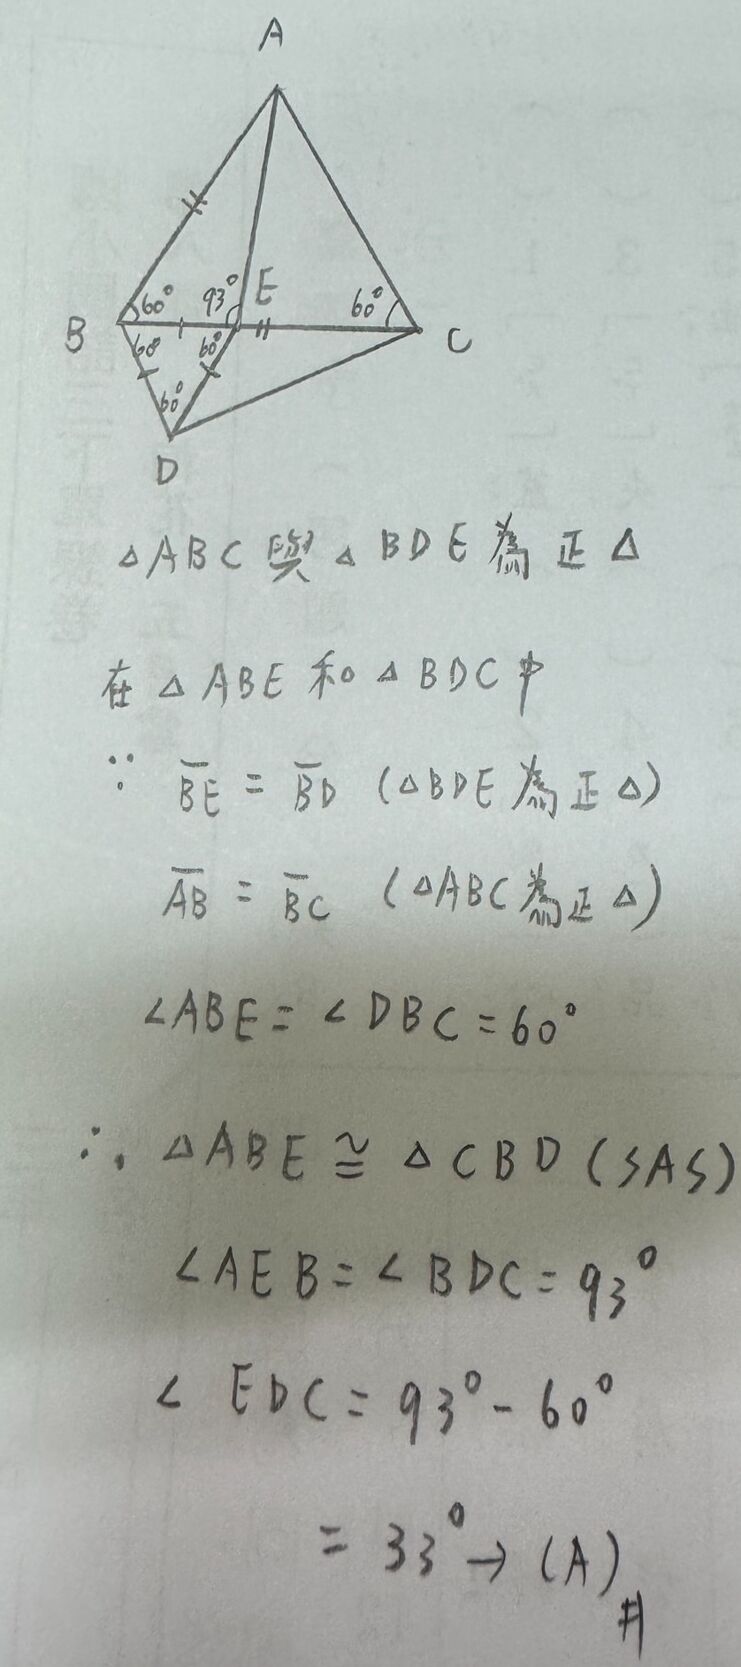 A
60° 93° E 60°
B C
60° 60°
60°
D
△ABC與△BDE為正△
在△ABE和△BDC中
∵ B̅E̅ = B̅D̅ (△BDE為正△)
A̅B̅ = B̅C̅ (△ABC為正△)
∠ABE = ∠DBC = 60°
∴ △ABE ≅ △CBD (SAS)
∠AEB = ∠BDC = 93°
∠EDC = 93° - 60°
= 33° → (A) #